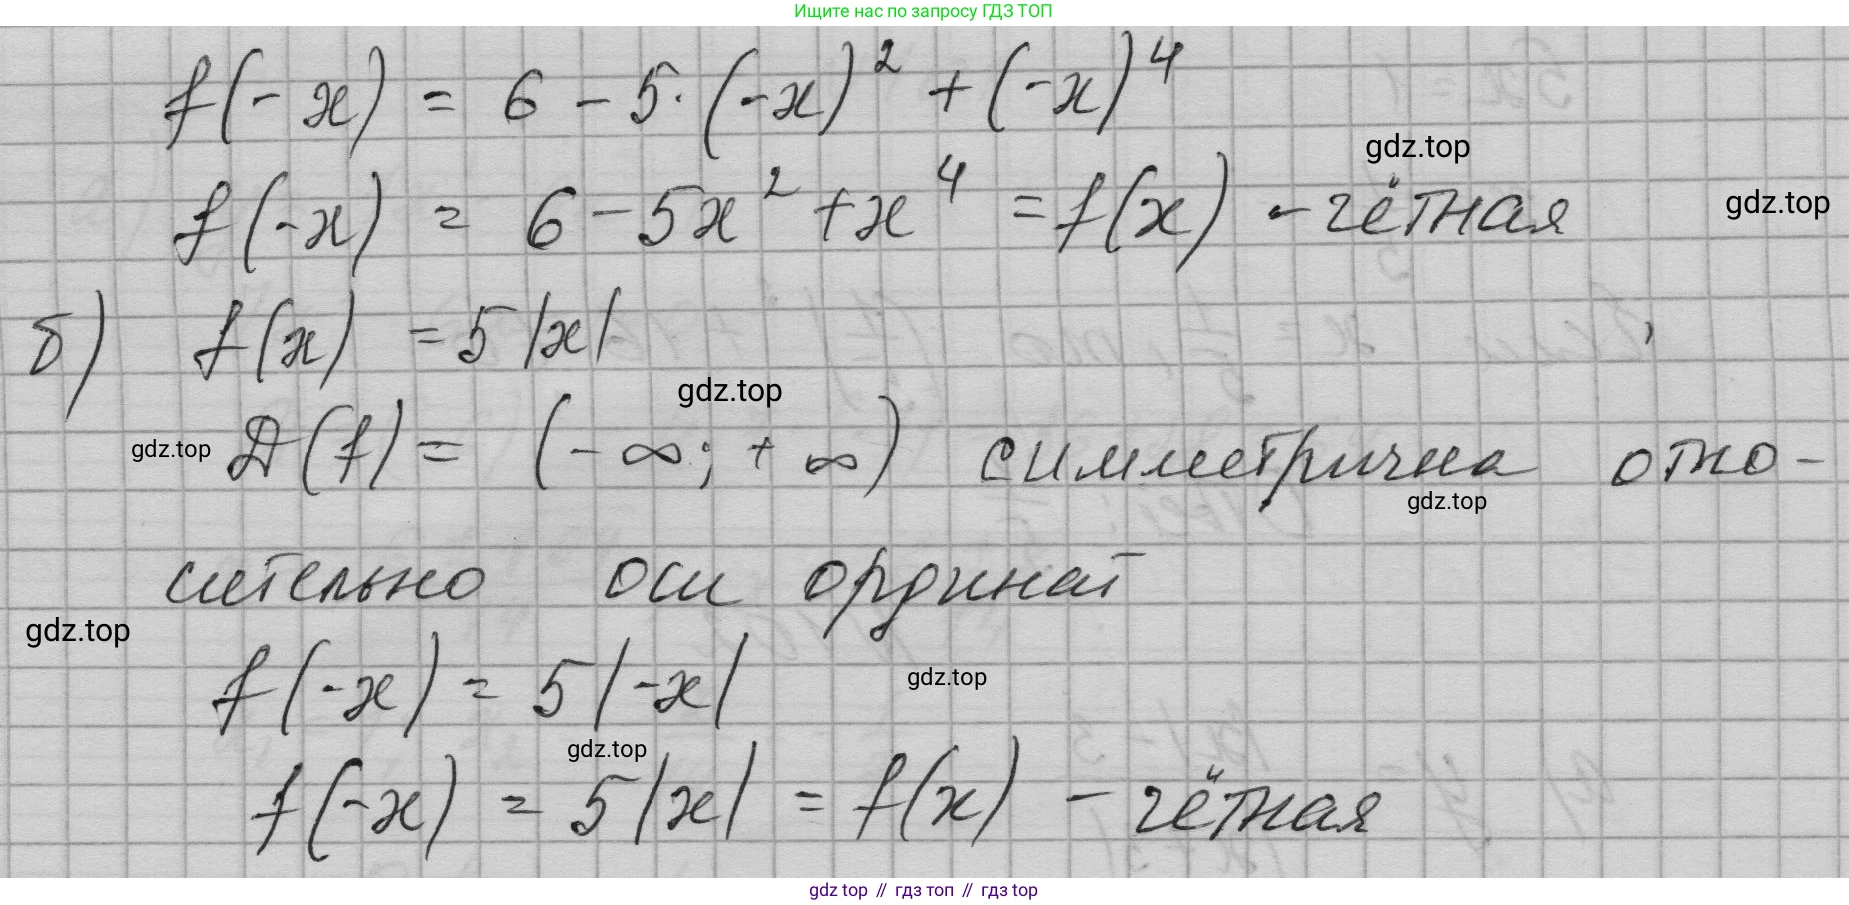 Ищите нас по запросу ГДЗ ТОП
f(-x) = 6 - 5·(-x)² + (-x)⁴
gdz.top
f(-x) = 6 - 5x² + x⁴ = f(x) - чётная
gdz.top
б) f(x) = 5|x|
gdz.top
gdz.top
D(f) = (-∞; +∞) симметрична отно-
gdz.top
сительно оси ординат
gdz.top
f(-x) = 5|-x|
gdz.top
gdz.top
f(-x) = 5|x| = f(x) - чётная
gdz top // гдз топ // гдз top